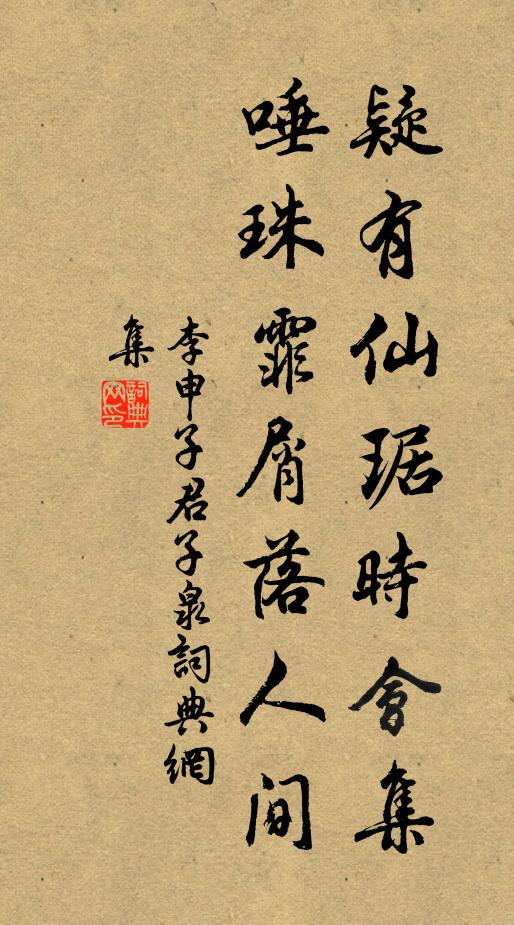 疑有仙琚時會集
唾珠霏屑落人間
李申子君子泉詞典網
集
詞典网印